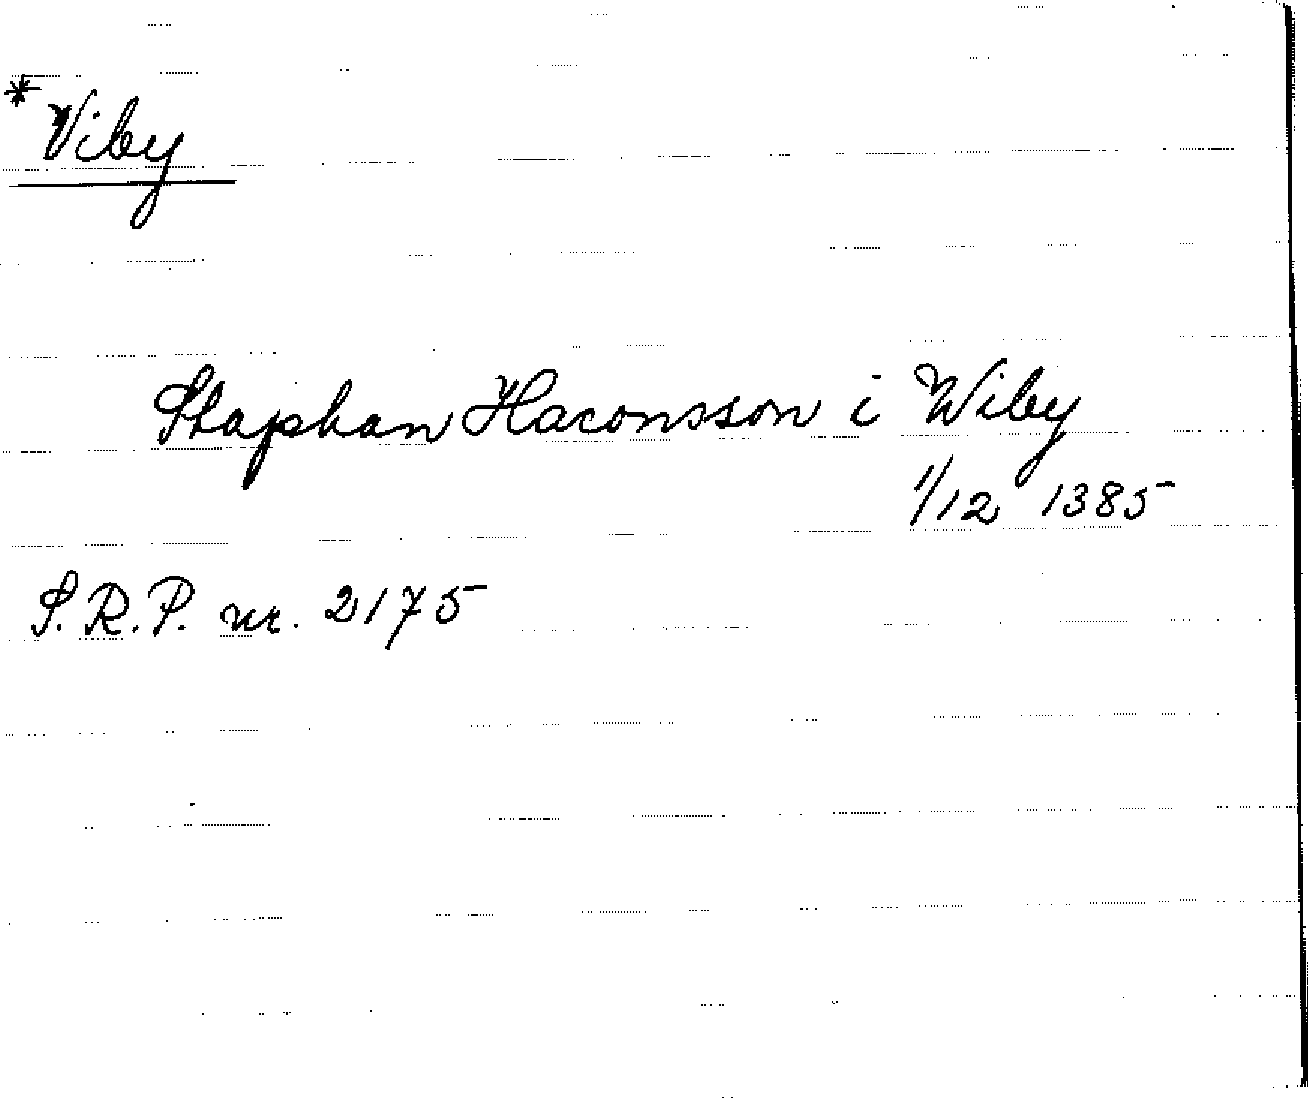 * Viby
Staphan Haconsson i Wiby
1/12 1385
S.R.P. nr. 2175